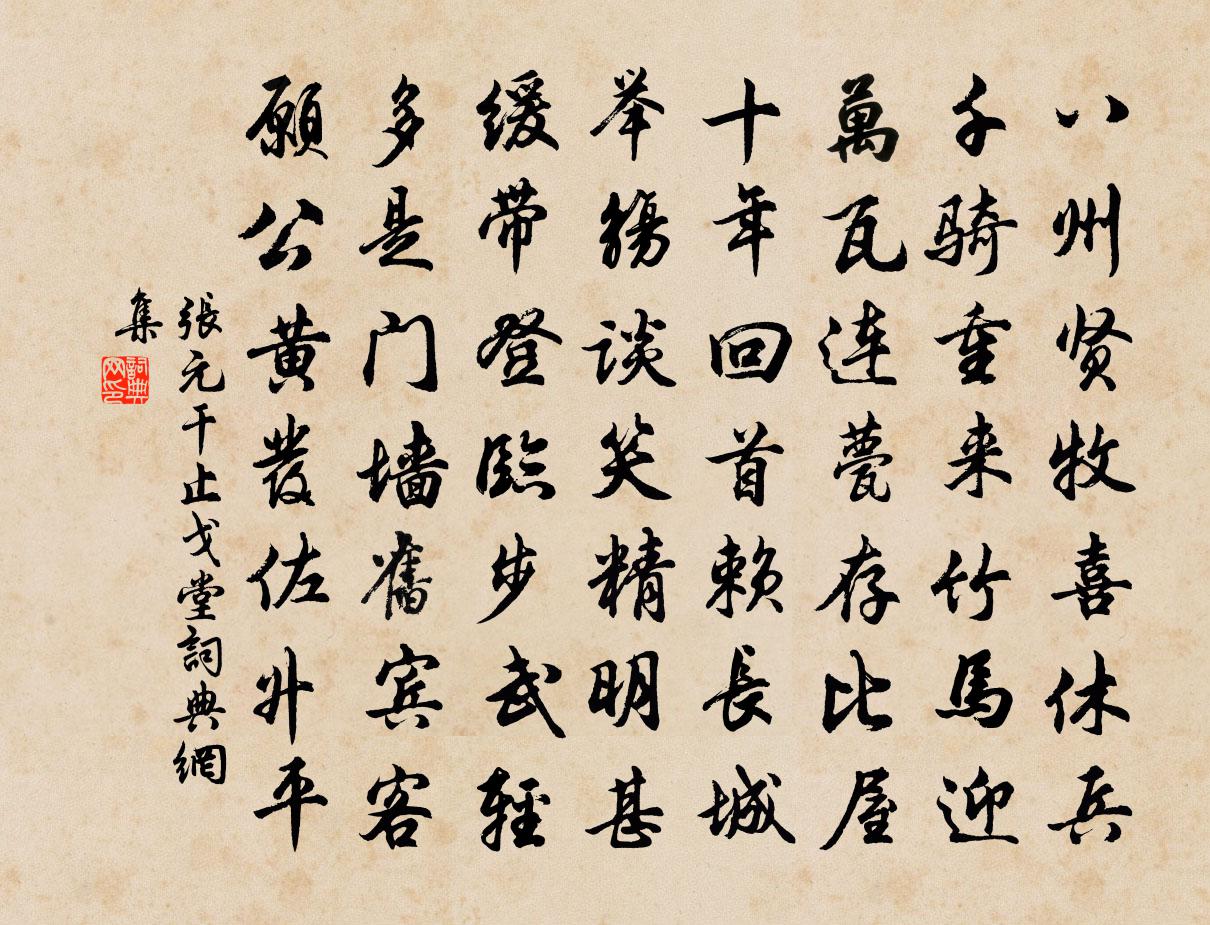 八州贤牧喜休兵
千骑重来竹馬迎
萬瓦连甍存比屋
十年回首赖長城
举觴談笑精明甚
缓带登臨步武輕
多是门墙舊宾客
願公黄髮佐升平
張元干止戈堂詞典網
集
詞典
网印